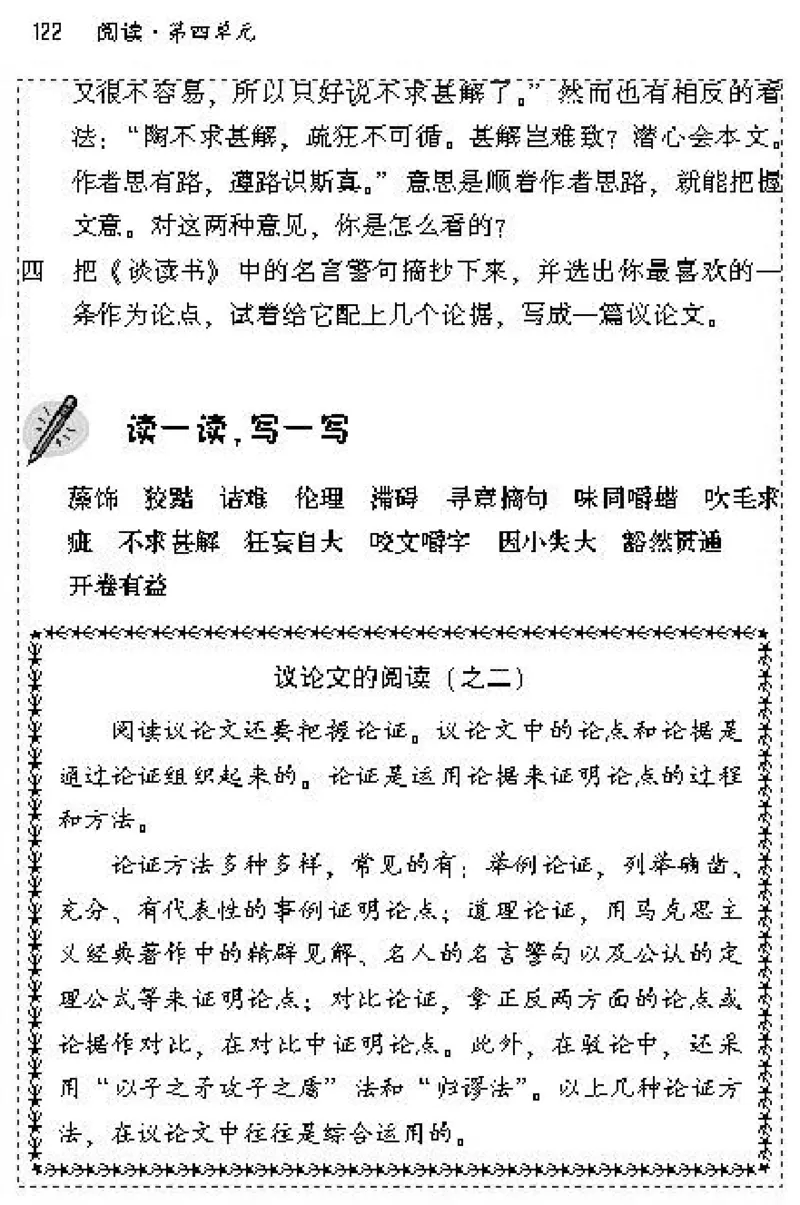 122 阅读·第四单元
又很不容易，所以只好说不求甚解了。”然而也有相反的看
法：“陶不求甚解，疏狂不可循。甚解岂难致？潜心会本文。
作者思有路，遵路识斯真。”意思是顺着作者思路，就能把握
文意。对这两种意见，你是怎么看的？
四 把《谈读书》中的名言警句摘抄下来，并选出你最喜欢的一
条作为论点，试着给它配上几个论据，写成一篇议论文。
读一读，写一写
藻饰 狡黠 诘难 伦理 滞碍 寻章摘句 味同嚼蜡 吹毛求
疵 不求甚解 狂妄自大 咬文嚼字 因小失大 豁然贯通
开卷有益
议论文的阅读（之二）
阅读议论文还要把握论证。议论文中的论点和论据是
通过论证组织起来的。论证是运用论据来证明论点的过程
和方法。
论证方法多种多样，常见的有：举例论证，列举确凿、
充分、有代表性的事例证明论点；道理论证，用马克思主
义经典著作中的精辟见解、名人的名言警句以及公认的定
理公式等来证明论点；对比论证，拿正反两方面的论点或
论据作对比，在对比中证明论点。此外，在驳论中，还采
用“以子之矛攻子之盾”法和“归谬法”。以上几种论证方
法，在议论文中往往是综合运用的。